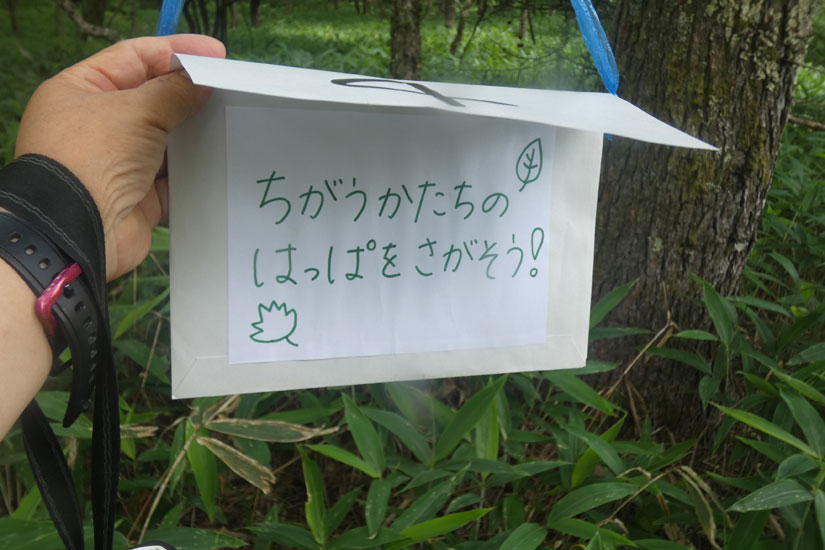 ちがうかたちの
はっぱをさがそう!